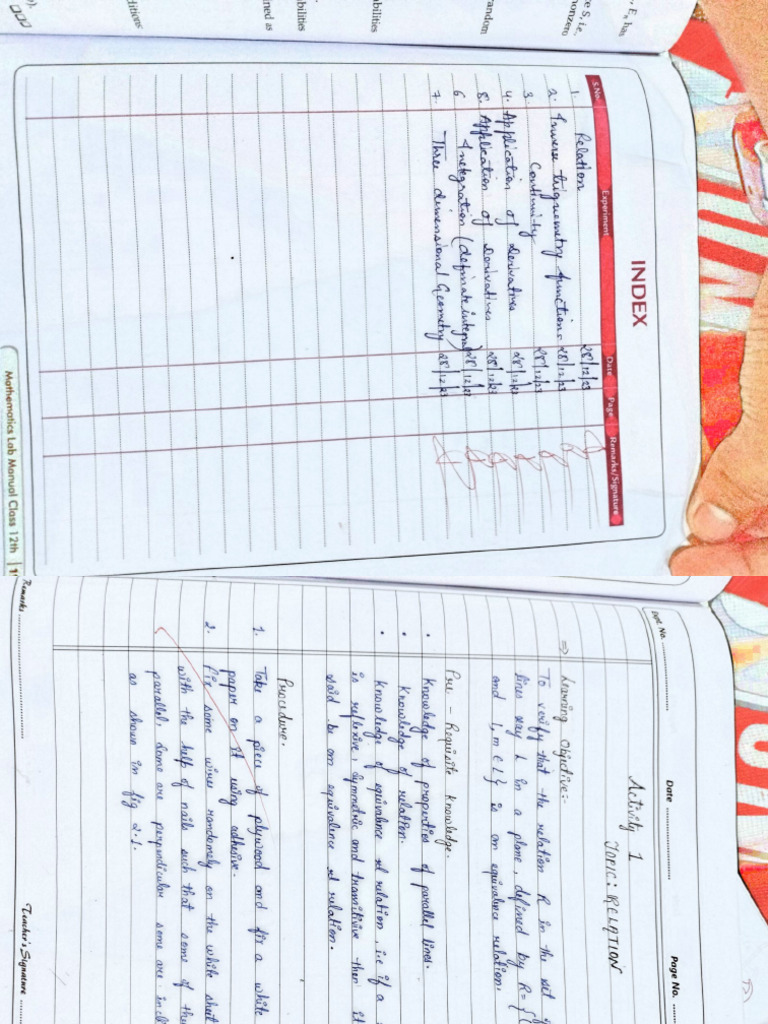 , Eₙ has
e S, i.e.,
nonzero
random
abilities
ined as
abilities
ditions
).
INDEX
S.No. Experiment Date Page Remarks/Signature
1. Relation 28/12/23
2. Inverse trignometry function. 28/12/23
3. Continuity 28/12/23
4. Application of Derivatives 28/12/23
5. Application of Derivatives 28/12/23
6. Integration (definate integral) 28/12/23
7. Three dimensional Geometry 28/12/23
Mathematics Lab Manual Class 12th
Expt. No. Date Page No.
Activity 1
TOPIC: RELATION
⇒ Learning Objective:-
To verify that the relation R in the set of
lines say L in a plane, defined by R = {(
and l, m ∈ L} is an equivalence relation.
Pre-Requisite Knowledge.
• Knowledge of properties of parallel lines.
• Knowledge of relation.
• Knowledge of equivalence relation, i.e if a
is reflexive, symmetric and transitive then it
said be an equivalence relation.
Procedure.
1. Take a piece of plywood and fix a white
paper on it using adhesive.
2. Fix some wires randomly on the white sheet
with the help of nails such that some of the
parallel, some are perpendicular some are incl
as shown in fig 2.1.
Remarks
Teacher's Signature